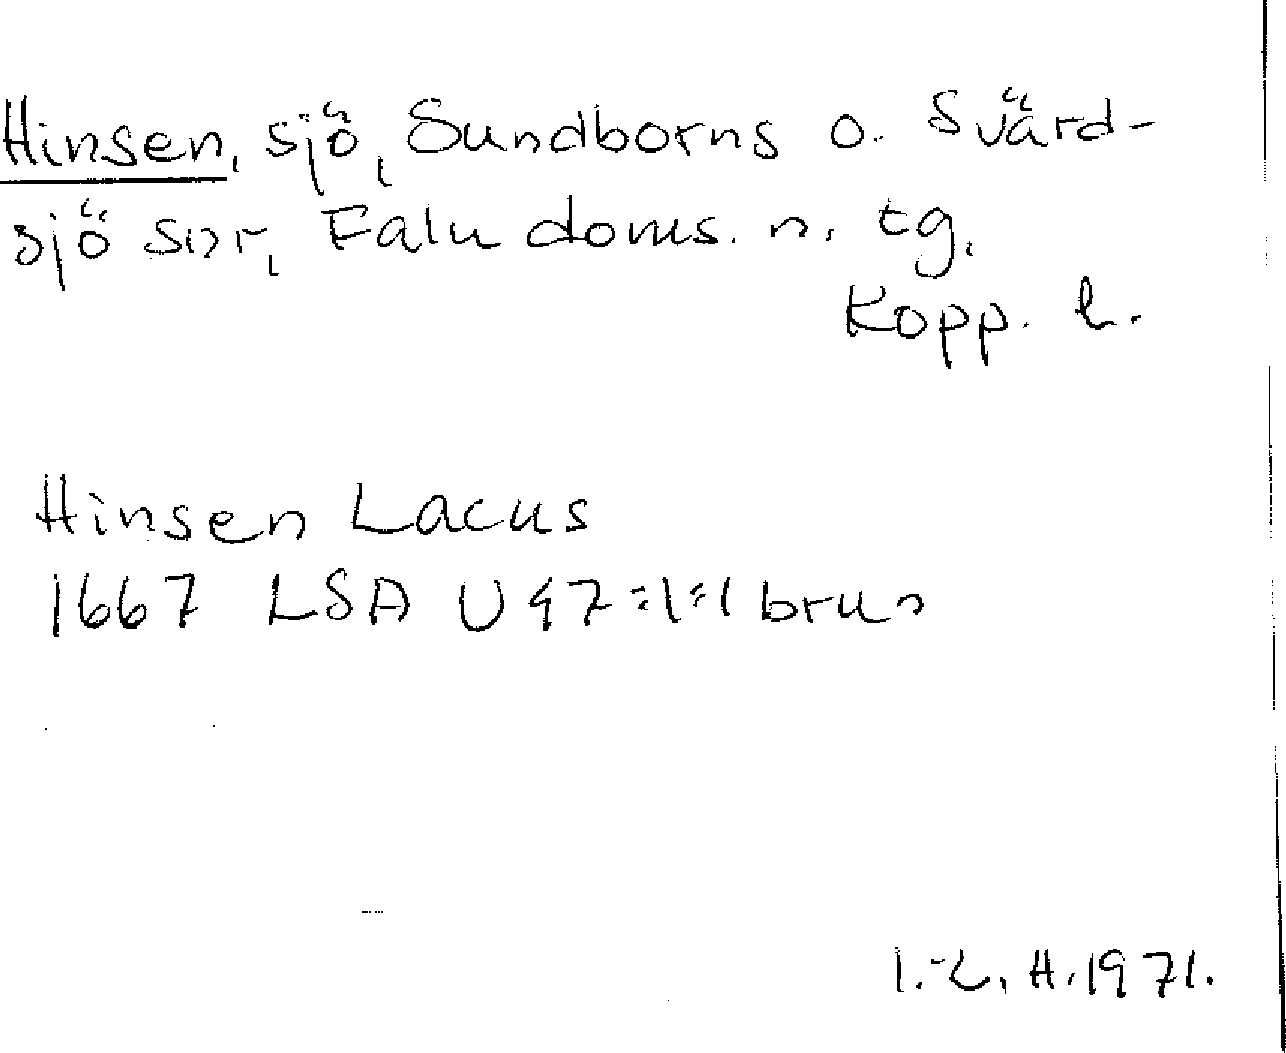 Hinsen, sjö, Sundborns o. Svärd-
sjö snr, Falu doms. n. tg.
Kopp. l.
Hinsen Lacus
1667 LSA U47:1:1 brun
I.-L. H. 1971.